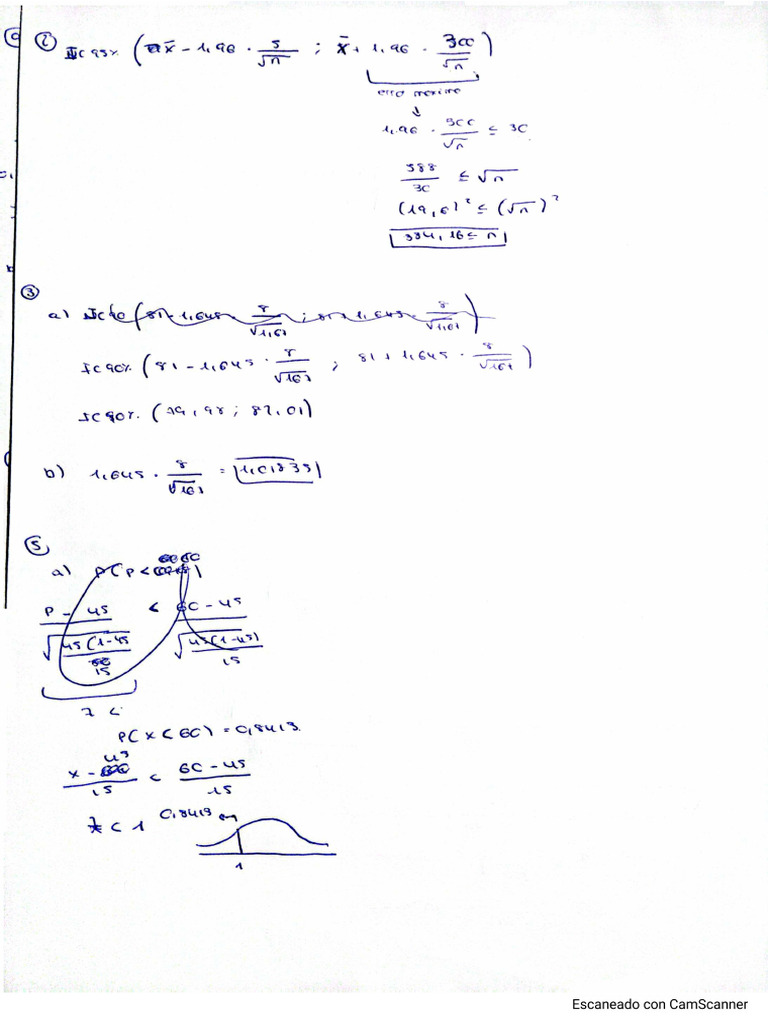 ② IC 95% ( x̄ - 1,96 · s/√n ; x̄ + 1,96 · 300/√n )
erro maximo
↓
1,96 · 300/√n ≤ 30
588/30 ≤ √n
(19,6)² ≤ (√n)²
384,16 ≤ n
③
a) IC 90 ( 81 - 1,645 · 8/√167 ; 81 + 1,645 · 8/√167 )
IC 90% ( 81 - 1,645 · 8/√167 ; 81 + 1,645 · 8/√167 )
IC 90% ( 79,98 ; 82,01 )
b) 1,645 · 8/√167 = 1,01835
⑤
a) P(P < 60)
P - 45 / √(45(1-45)/15) < 60 - 45 / √(45(1-45)/15)
Z <
P(X < 60) = 0,8413
x - 45 / 15 < 60 - 45 / 15
Z < 1 0,8413 en
1
Escaneado con CamScanner